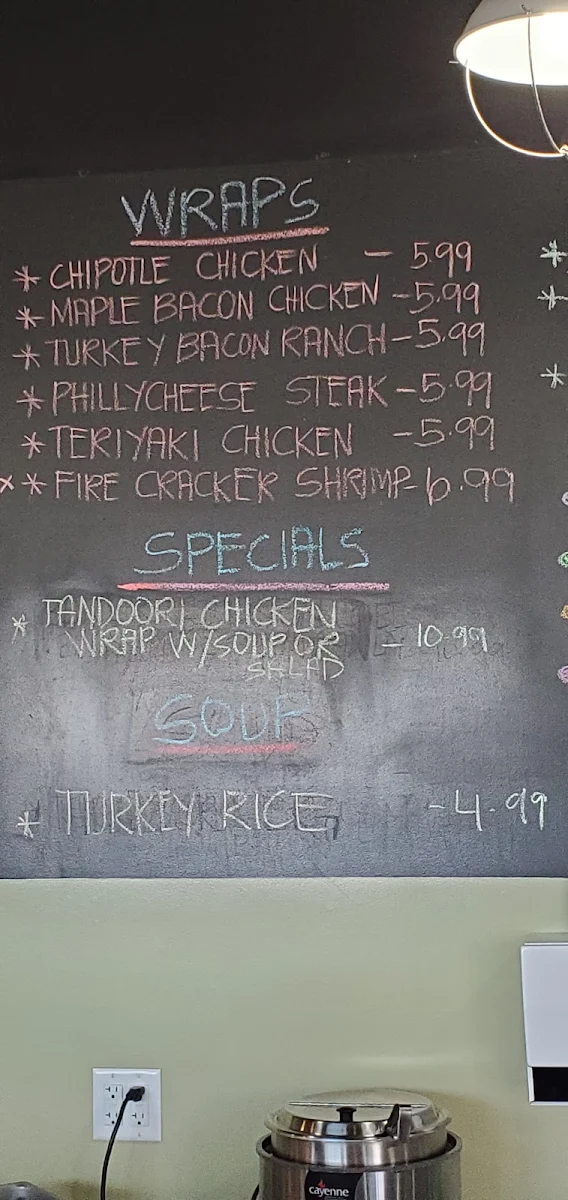 WRAPS
* CHIPOTLE CHICKEN - 5.99
* MAPLE BACON CHICKEN - 5.99
* TURKEY BACON RANCH - 5.99
* PHILLYCHEESE STEAK - 5.99
* TERIYAKI CHICKEN - 5.99
** FIRE CRACKER SHRIMP - 6.99
SPECIALS
* TANDOORI CHICKEN
WRAP W/SOUP OR - 10.99
SALAD
SOUP
* TURKEY RICE - 4.99
cayenne